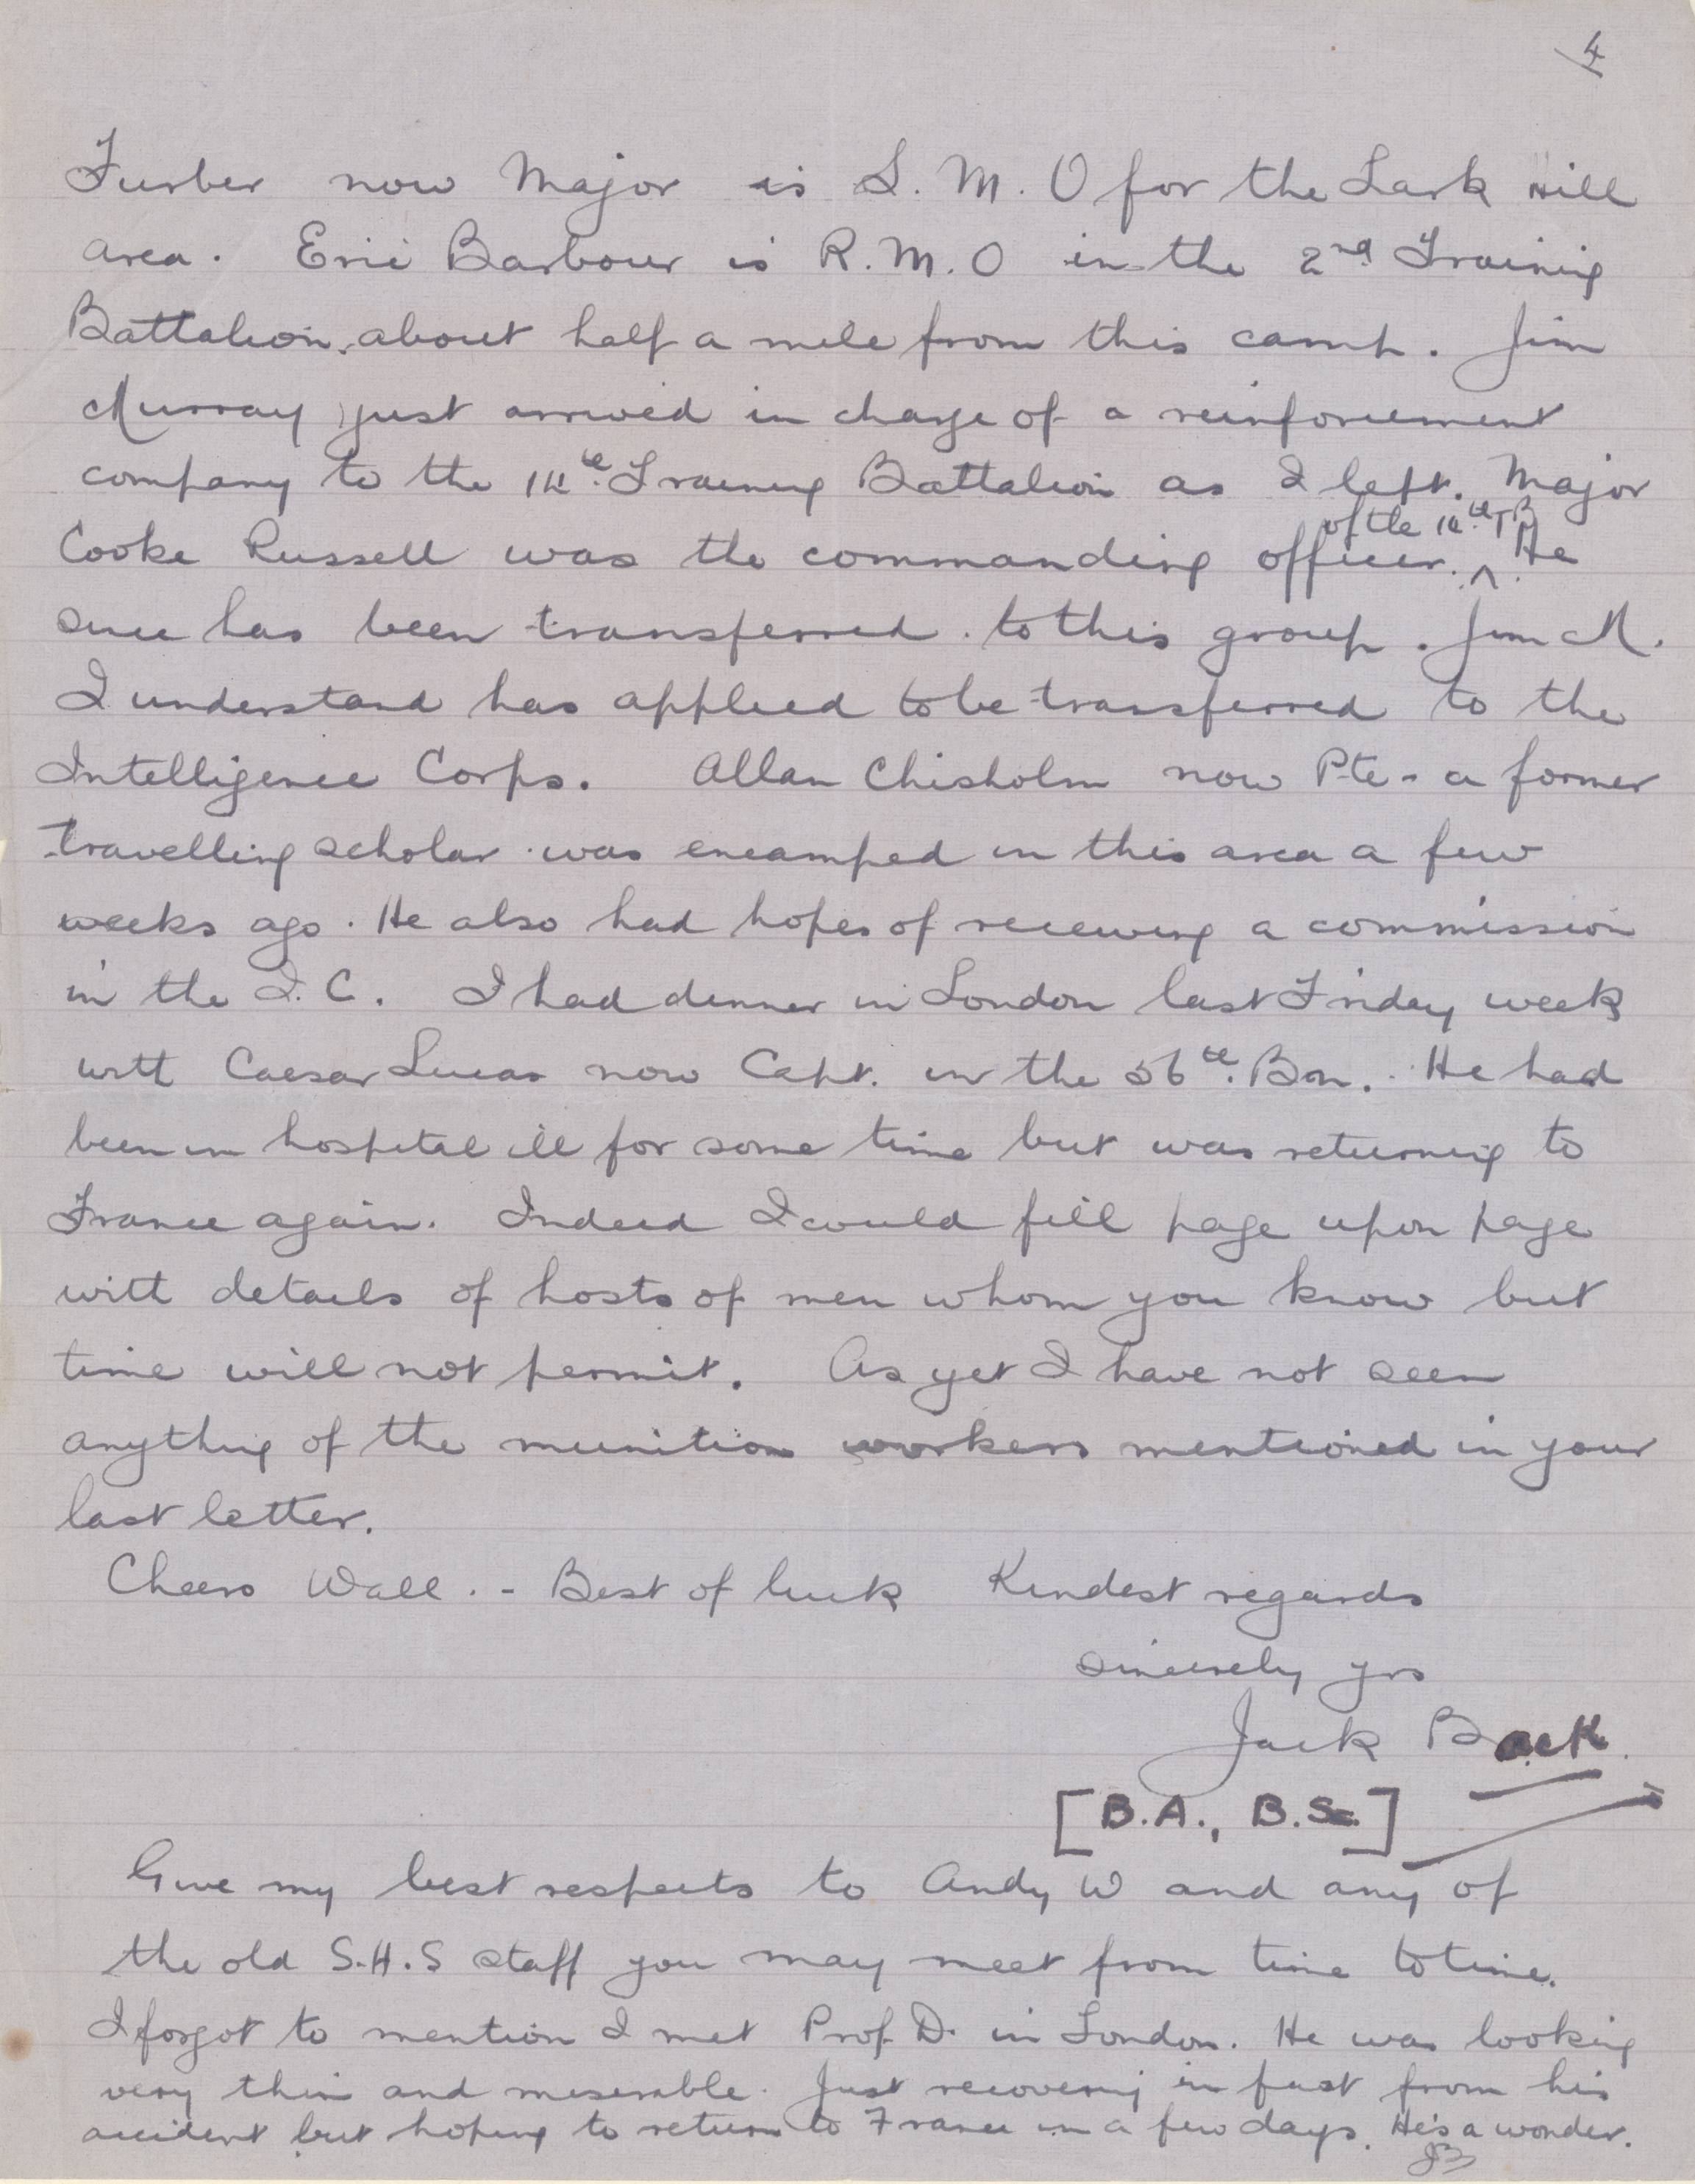 4
Furber now Major is S. M. O for the Lark Hill
area. Eric Barbour is R.M.O in the 2nd Training
Battalion, about half a mile from this camp. Jim
Murray just arrived in charge of a reinforcement
company to the 14th Training Battalion as I left. Major
of the 14th TB
Cooke Russell was the commanding officer. ^ He
since has been transferred to this group. Jim M.
I understand has applied to be transferred to the
Intelligence Corps. Allan Chisholm now Pte - a former
travelling scholar was encamped in this area a few
weeks ago. He also had hopes of receiving a commission
in the I.C. I had dinner in London last Friday week
with Caesar Lucas now Capt. in the 56th Bn. He had
been in hospital ill for some time but was returning to
France again. Indeed I could fill page upon page
with details of hosts of men whom you know but
time will not permit. As yet I have not seen
anything of the munition workers mentioned in your
last letter.
Cheero Wall. - Best of luck Kindest regards
Sincerely yrs
Jack Back
[B.A., B.Sc.]
Give my best respects to Andy W and any of
the old S.H.S staff you may meet from time to time.
I forgot to mention I met Prof. D. in London. He was looking
very thin and miserable. Just recovering in fact from his
accident but hoping to return to France in a few days. He's a wonder.
JB